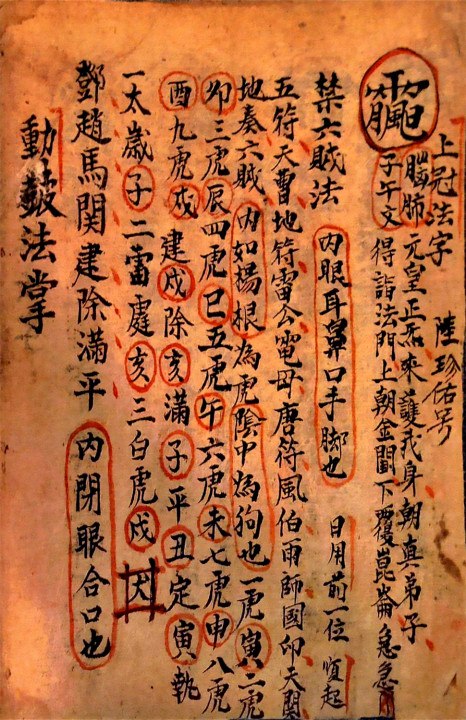 上冠法字 陸珍佑号
子午文
元皇正炁來護我身朝真弟子
得詣法門上朝金闕下覆崑崙急急
禁六賊法 內眼耳鼻口手脚也 日用前一位 順起
五符天曹地符雷公電母唐符風伯雨師國印天關
地奏六賊內如楊根為虎陰中為狗也一虎寅二虎
卯三虎辰四虎巳五虎午六虎未七虎申八虎
酉九虎戌 建戌除亥滿子平丑定寅執
一太歲子二雷處亥三白虎戌 犬
鄧趙馬関建除滿平 內閉眼合口也
動鼓法掌